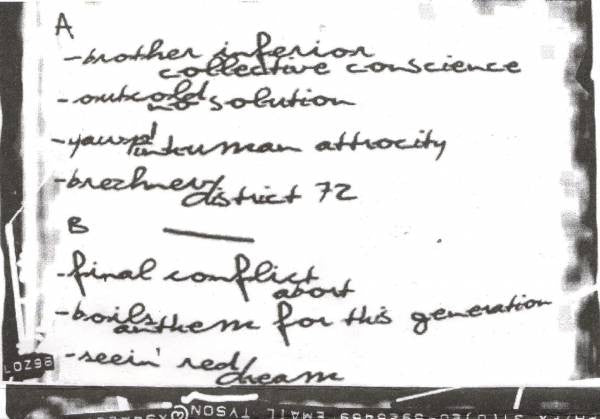 A
-brother inferior
collective conscience
-outcold
no solution
-yawp!
inhuman attrocity
-brezhnev/
district 72
B
-final conflict
abort
-boils
anthem for this generation
-seein' red/
dream
EMAIL TYSON@